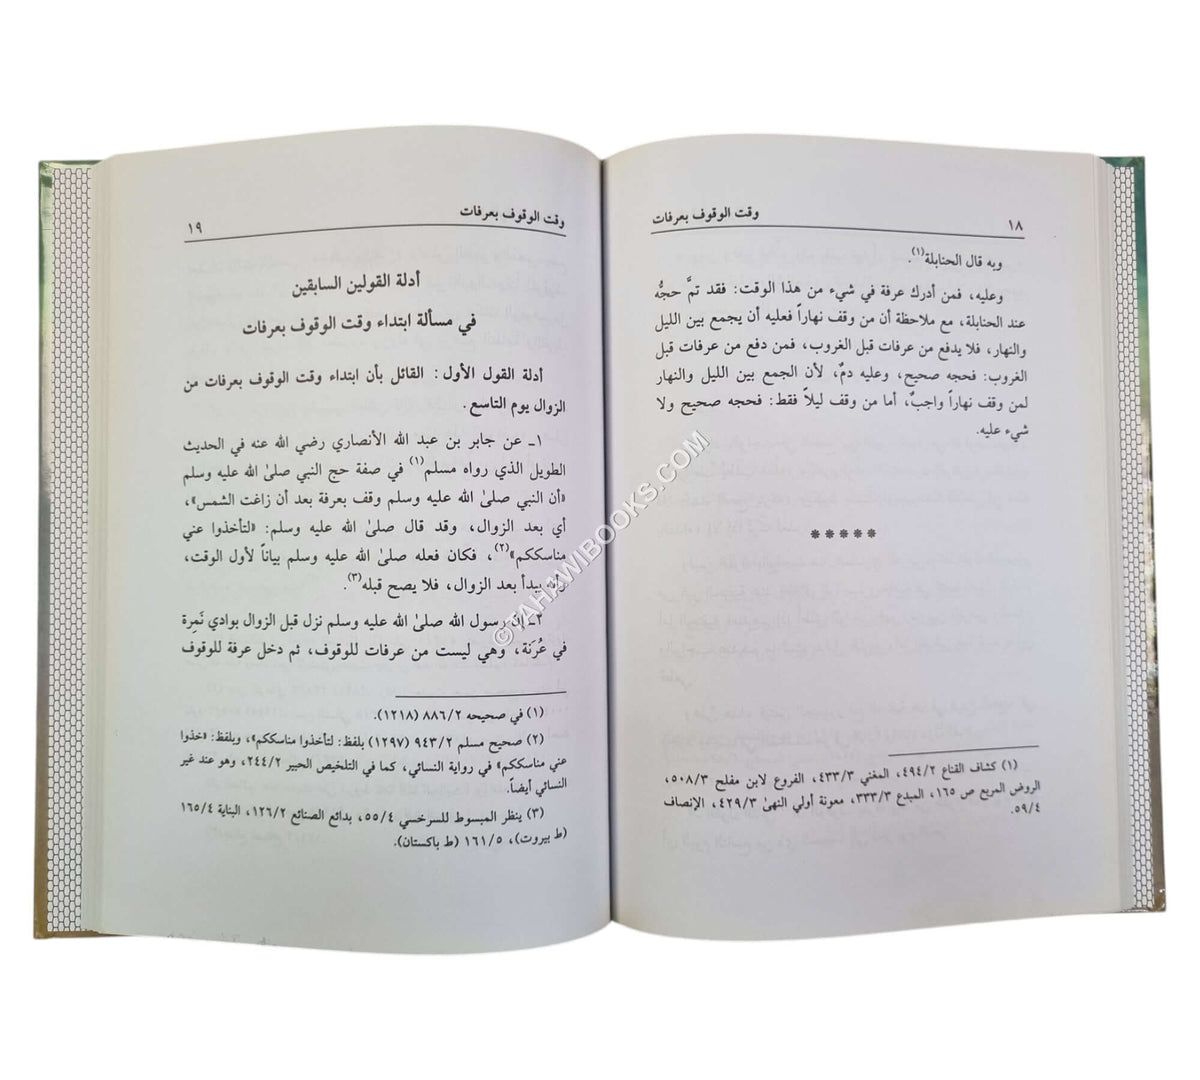 ١٨
وقت الوقوف بعرفات
وبه قال الحنابلة(١).
وعليه، فمن أدرك عرفة في شيء من هذا الوقت: فقد تمَّ حجُّه
عند الحنابلة، مع ملاحظة أن من وقف نهاراً فعليه أن يجمع بين الليل
والنهار، فلا يدفع من عرفات قبل الغروب، فمن دفع من عرفات قبل
الغروب: فحجه صحيح، وعليه دمٌ، لأن الجمع بين الليل والنهار
لمن وقف نهاراً واجبٌ، أما من وقف ليلاً فقط: فحجه صحيح ولا
شيء عليه.
*****
(١) كشاف القناع ٤٩٤/٢، المغني ٤٣٣/٣، الفروع لابن مفلح ٥٠٨/٣،
الروض المربع ص ١٦٥، المبدع ٣٣٣/٣، معونة أولي النهىٰ ٤٢٩/٣، الإنصاف
٥٩/٤.
وقت الوقوف بعرفات
١٩
أدلة القولين السابقين
في مسألة ابتداء وقت الوقوف بعرفات
أدلة القول الأول: القائل بأن ابتداء وقت الوقوف بعرفات من
الزوال يوم التاسع.
١ـ عن جابر بن عبد الله الأنصاري رضي الله عنه في الحديث
الطويل الذي رواه مسلم(١) في صفة حج النبي صلىٰ الله عليه وسلم
«أن النبي صلىٰ الله عليه وسلم وقف بعرفة بعد أن زاغت الشمس»،
أي بعد الزوال، وقد قال صلىٰ الله عليه وسلم: «لتأخذوا عني
مناسككم»(٢)، فكان فعله صلىٰ الله عليه وسلم بياناً لأول الوقت،
وأنه يبدأ بعد الزوال، فلا يصح قبله(٣).
٢ـ إن رسول الله صلىٰ الله عليه وسلم نزل قبل الزوال بوادي نَمِرة
في عُرَنة، وهي ليست من عرفات للوقوف، ثم دخل عرفة للوقوف
(١) في صحيحه ٨٨٦/٢ (١٢١٨).
(٢) صحيح مسلم ٩٤٣/٢ (١٢٩٧) بلفظ: لتأخذوا مناسككم»، وبلفظ: «خذوا
عني مناسككم» في رواية النسائي، كما في التلخيص الحبير ٢٤٤/٢، وهو عند غير
النسائي أيضاً.
(٣) ينظر المبسوط للسرخسي ٥٥/٤، بدائع الصنائع ١٢٦/٢، البناية ١٦٥/٤
(ط بيروت)، ١٦١/٥ (ط باكستان).
©TAHAWIBOOKS.COM